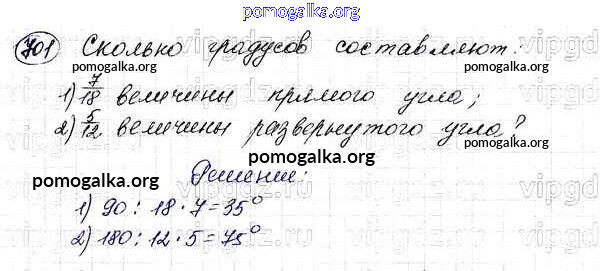 pomogalka.org
701 Сколько градусов составляют:
pomogalka.org pomogalka.org
1) 7/18 величины прямого угла;
2) 5/12 величины развернутого угла?
pomogalka.org
Решение:
pomogalka.org pomogalka.org
1) 90 : 18 · 7 = 35°
2) 180 : 12 · 5 = 75°
pomogalka.org